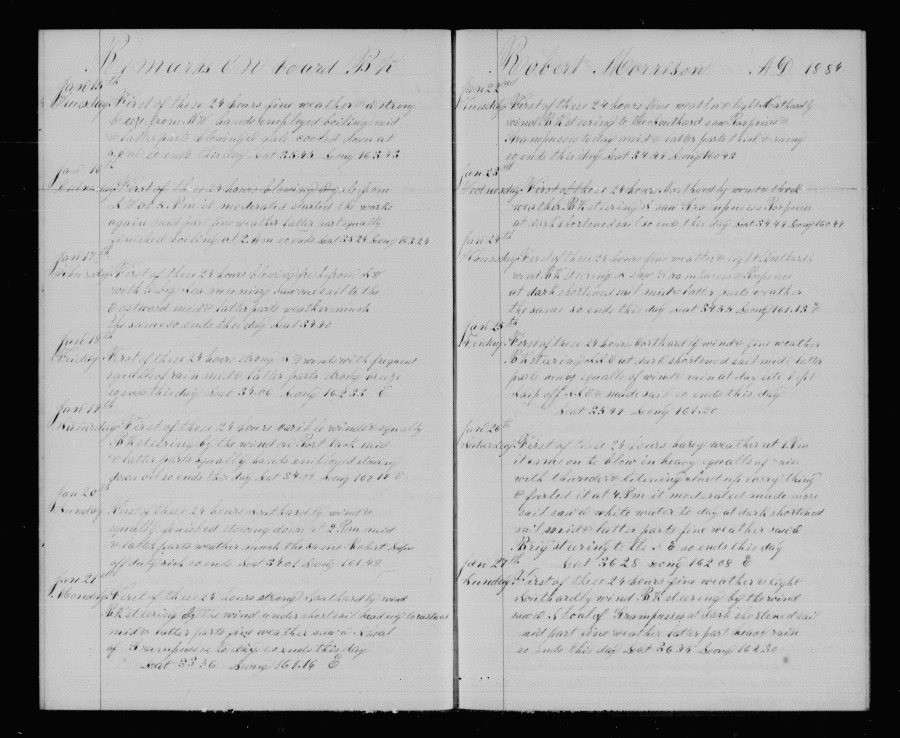 Remarks On board Bk
Jan 15th
Tuesday First of these 24 hours fine weather & a strong
from NW hands employed boiling mid
& latter parts blowing a gale cooled down at
so ends this day Lat 35.45 Long 163.43
Jan 16th
First of these 24 hours blowing a gale from
at 8 Pm it moderated started the works
again mid part fine weather latter part squally
finished boiling at 2 Am so ends Lat 35 24 Long 163.24
Jan 17th
Thursday First of these 24 hours blowing fresh from
with a big sea running saw one sail to the
Eastward mid & latter parts weather much
the same so ends this day Lat 34.30
Jan 18th
Friday First of these 24 hours strong winds with frequent
squalls of rain mid & latter parts strong breeze
so ends this day Lat 34.06 Long 162 22 E
Jan 19th
Saturday First of these 24 hours variable winds & squally
Bk steering by the wind on Port tack mid
& latter parts squally hands employed stowing
down oil so ends this day Lat 34.04 Long E
Jan 20th
Sunday First of these 24 hours southardly wind &
squally finished stowing down at 2 Pm mid
& latter parts weather much the same Robert
off duty sick so ends Lat 34.01 Long 161.49
Jan 21st
Monday First of these 24 hours strong Southardly wind
Bk steering by the wind under short sail heading to eastward
mid & latter parts fine weather saw a Shoal
of Grampuses to day so ends this day
Lat 33 56 Long 161.16 E
Robert Morrison AD 1884
Jan 22nd
Tuesday First of these 24 hours fine weather & light Northardly
wind Bk steering to the Southard saw Porpoises &
Grampuses to day mid & latter parts thick & rainy
so ends this day Lat 34.44 Long 160 43
Jan 23rd
Wednesday First of those 24 hours Northardly wind & thick
weather Bk steering saw Grampuses & Porpoises
at dark shortened sail so ends this day Lat 34 44 Long 160 44
Jan 24th
Thursday First of these 24 hours fine weather & light Northardly
wind Bk steering saw Grampuses & Porpoises
at dark shortened sail mid & latter parts weather
the same so ends this day Lat 34.55 Long 161.13 E
Jan 25th
Friday First of these 24 hours Northardly wind & fine weather
Bk steering at dark shortened sail mid & latter
part many squalls of wind & rain at day
Keep off & made sail so ends this day
Lat 35 41 Long 161.20
Jan 26th
Saturday First of these 24 hours hazey weather at 1 Pm
it came on to blow in heavy squalls of rain
with thunder & litening clued up every thing
& furled it at 4 Pm it moderated made more
sail saw a white water to day at dark shortened
sail mid & latter parts fine weather saw a
Brig steering to the N E so ends this day
Lat 36 28 Long 162 08 E
Jan 27th
Sunday First of these 24 hours fine weather & light
Northardly wind Bk steering by the wind
saw a Shoal of Grampuses at dark shortened sail
mid part fine weather latter part rain
so ends this day Lat 36.45 Long 162.30